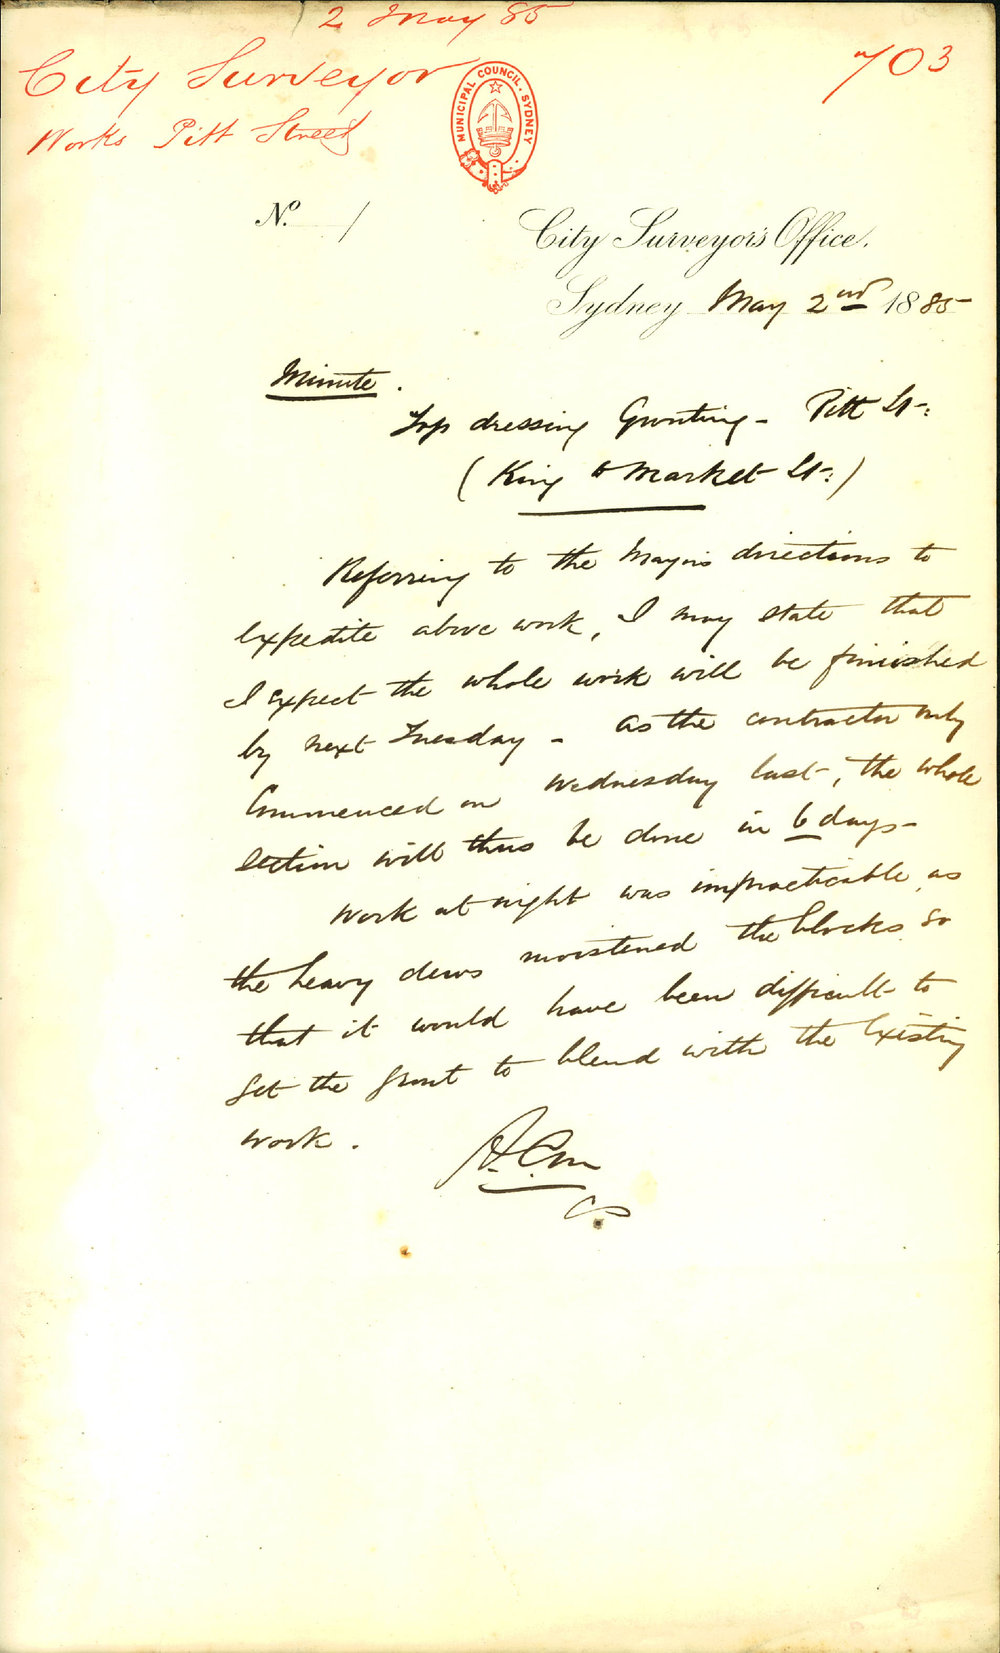 2 May 85
City Surveyor
703
Works Pitt Street
MUNICIPAL COUNCIL. SYDNEY
No. /
City Surveyor's Office.
Sydney May 2nd 1885
Minute.
Top dressing Grouting - Pitt St:
(King to Market St:)
Referring to the Mayor's directions to
expedite above work, I may state that
I expect the whole work will be finished
by next Tuesday - as the contractor only
commenced on Wednesday last, the whole
section will thus be done in 6 days -
Work at night was impracticable, as
the heavy dews moistened the blocks so
that it would have been difficult to
get the grout to blend with the existing
work.
CS